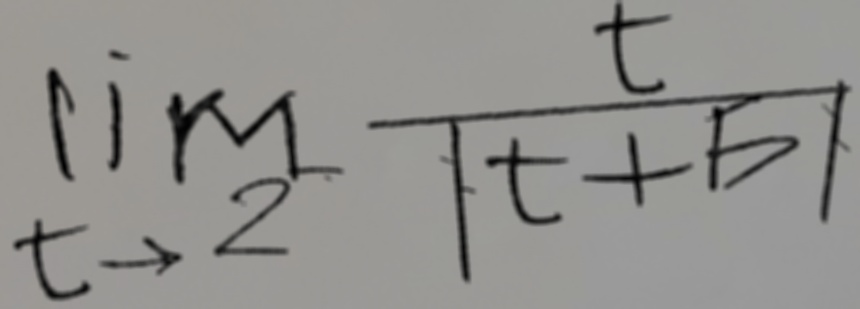 lim t→2⁻ t/|t+5|